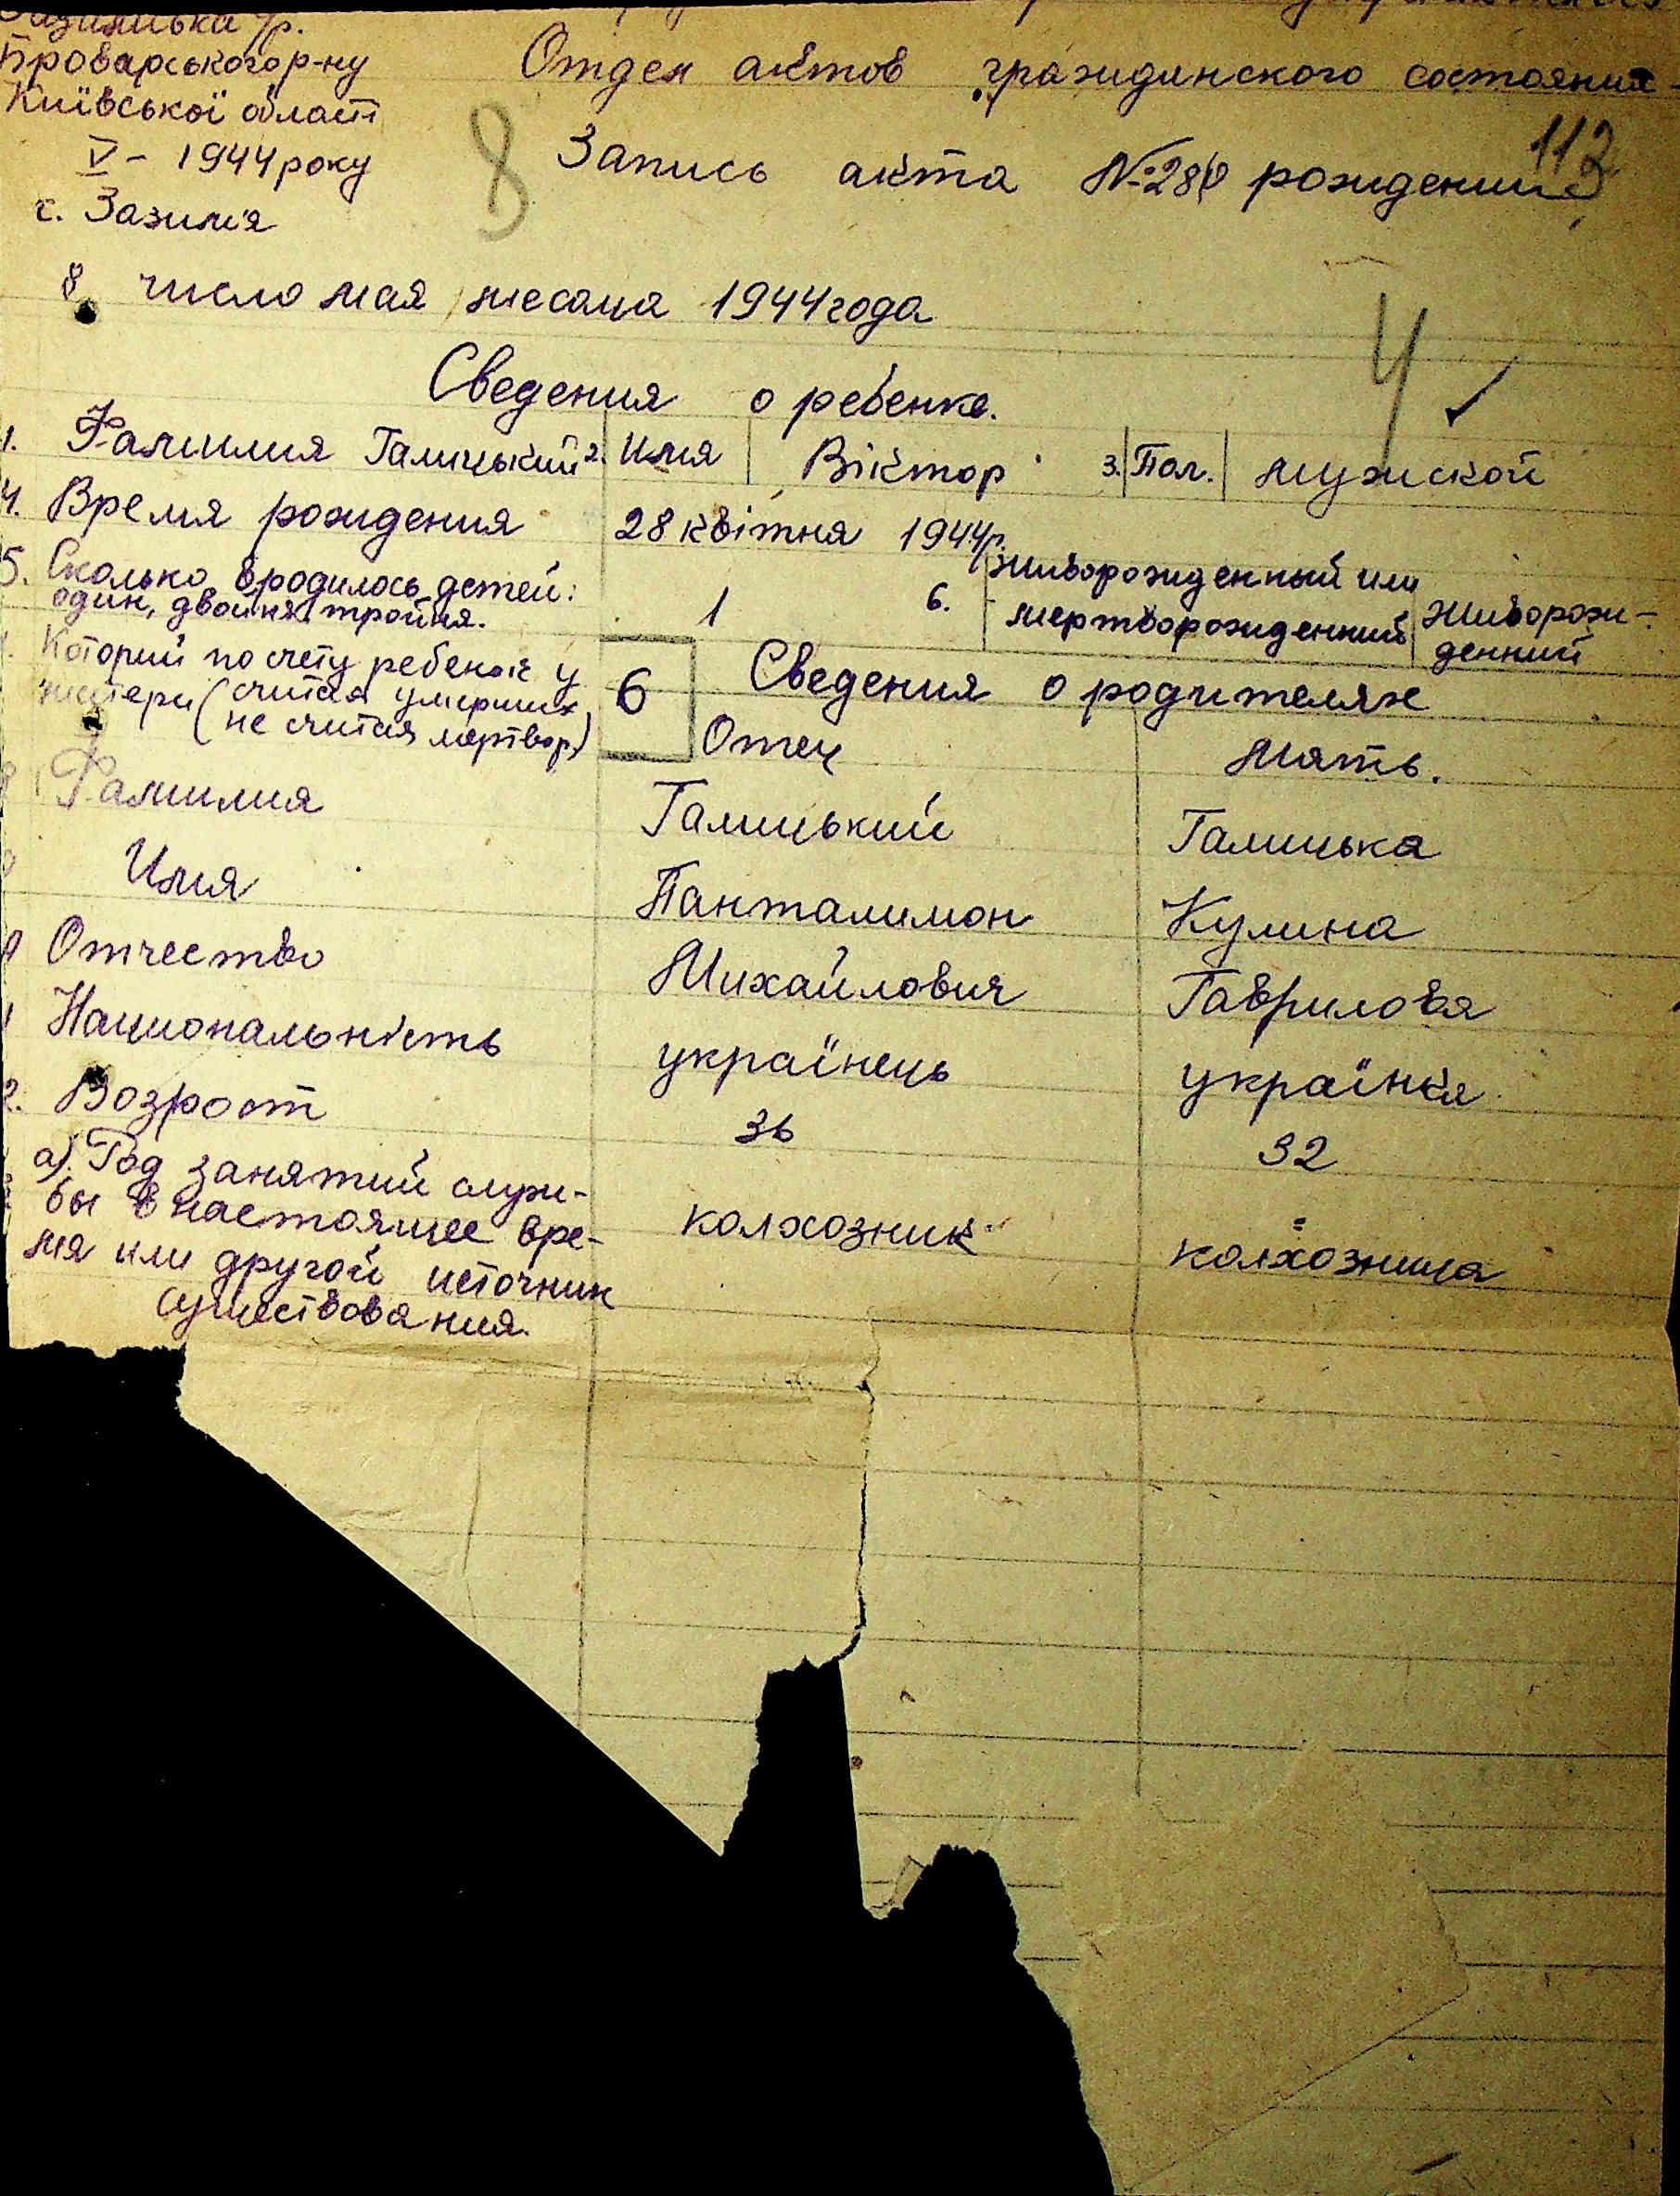 Броварського р-ну
Київської област
V – 1944 року
с. Зазим'я
Отдел актов гражданского состояния
8
Запись акта № 28 о рождении
113
8 число мая месяца 1944 года
Ч ✓
Сведения о ребенке.
1. Фамилия Галицький 2. Имя Віктор 3. Пол. мужской
4. Время рождения 28 квітня 1944 р.
5. Сколько родилось детей:
один, двойня, тройня. 1
6. живорожденный или
мертворожденний
Живорож-
денний
Которий по счету ребенок у
матери (считая умерших
не считая мертвор.)
6
Сведения о родителях
Отец Мать.
Фамилия Галицький Галицька
Имя Панталимон Кулина
Отчество Михайлович Гавриловя
Национальність українець українкя
2. Возрост 36 32
а). Род занятий служ-
бы в настоящее вре-
мя или другой источник
существования.
колхозник колхозница